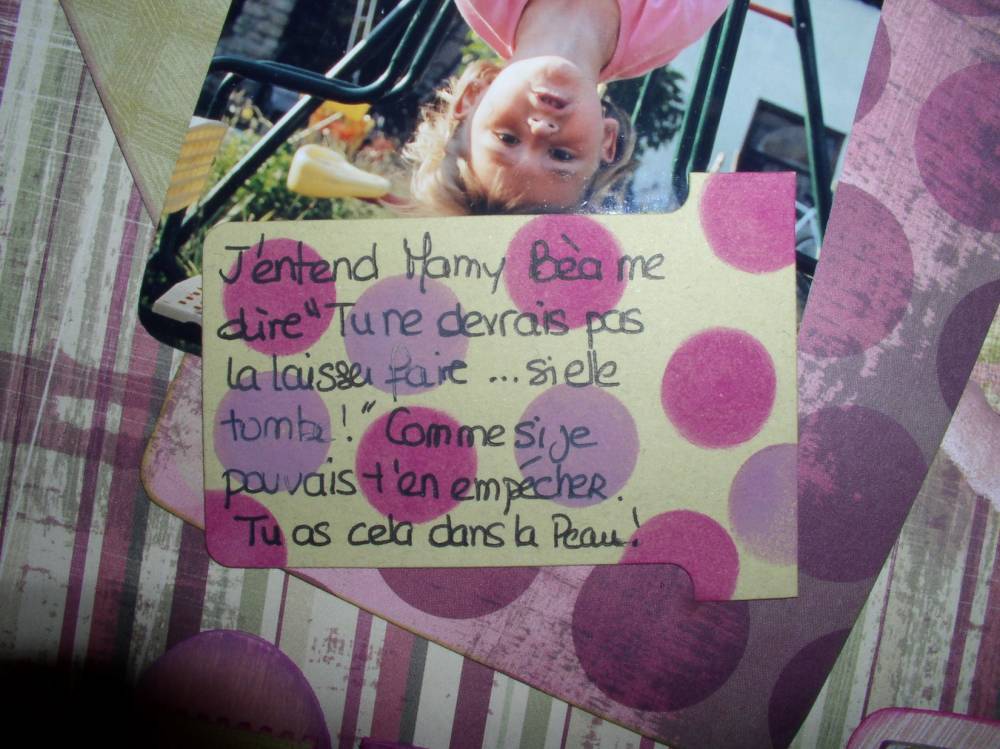 J'entend Mamy Bèa me
dire "Tu ne devrais pas
la laisser faire ... si elle
tombe !" Comme si je
pouvais t'en empécher.
Tu as cela dans la Peau !